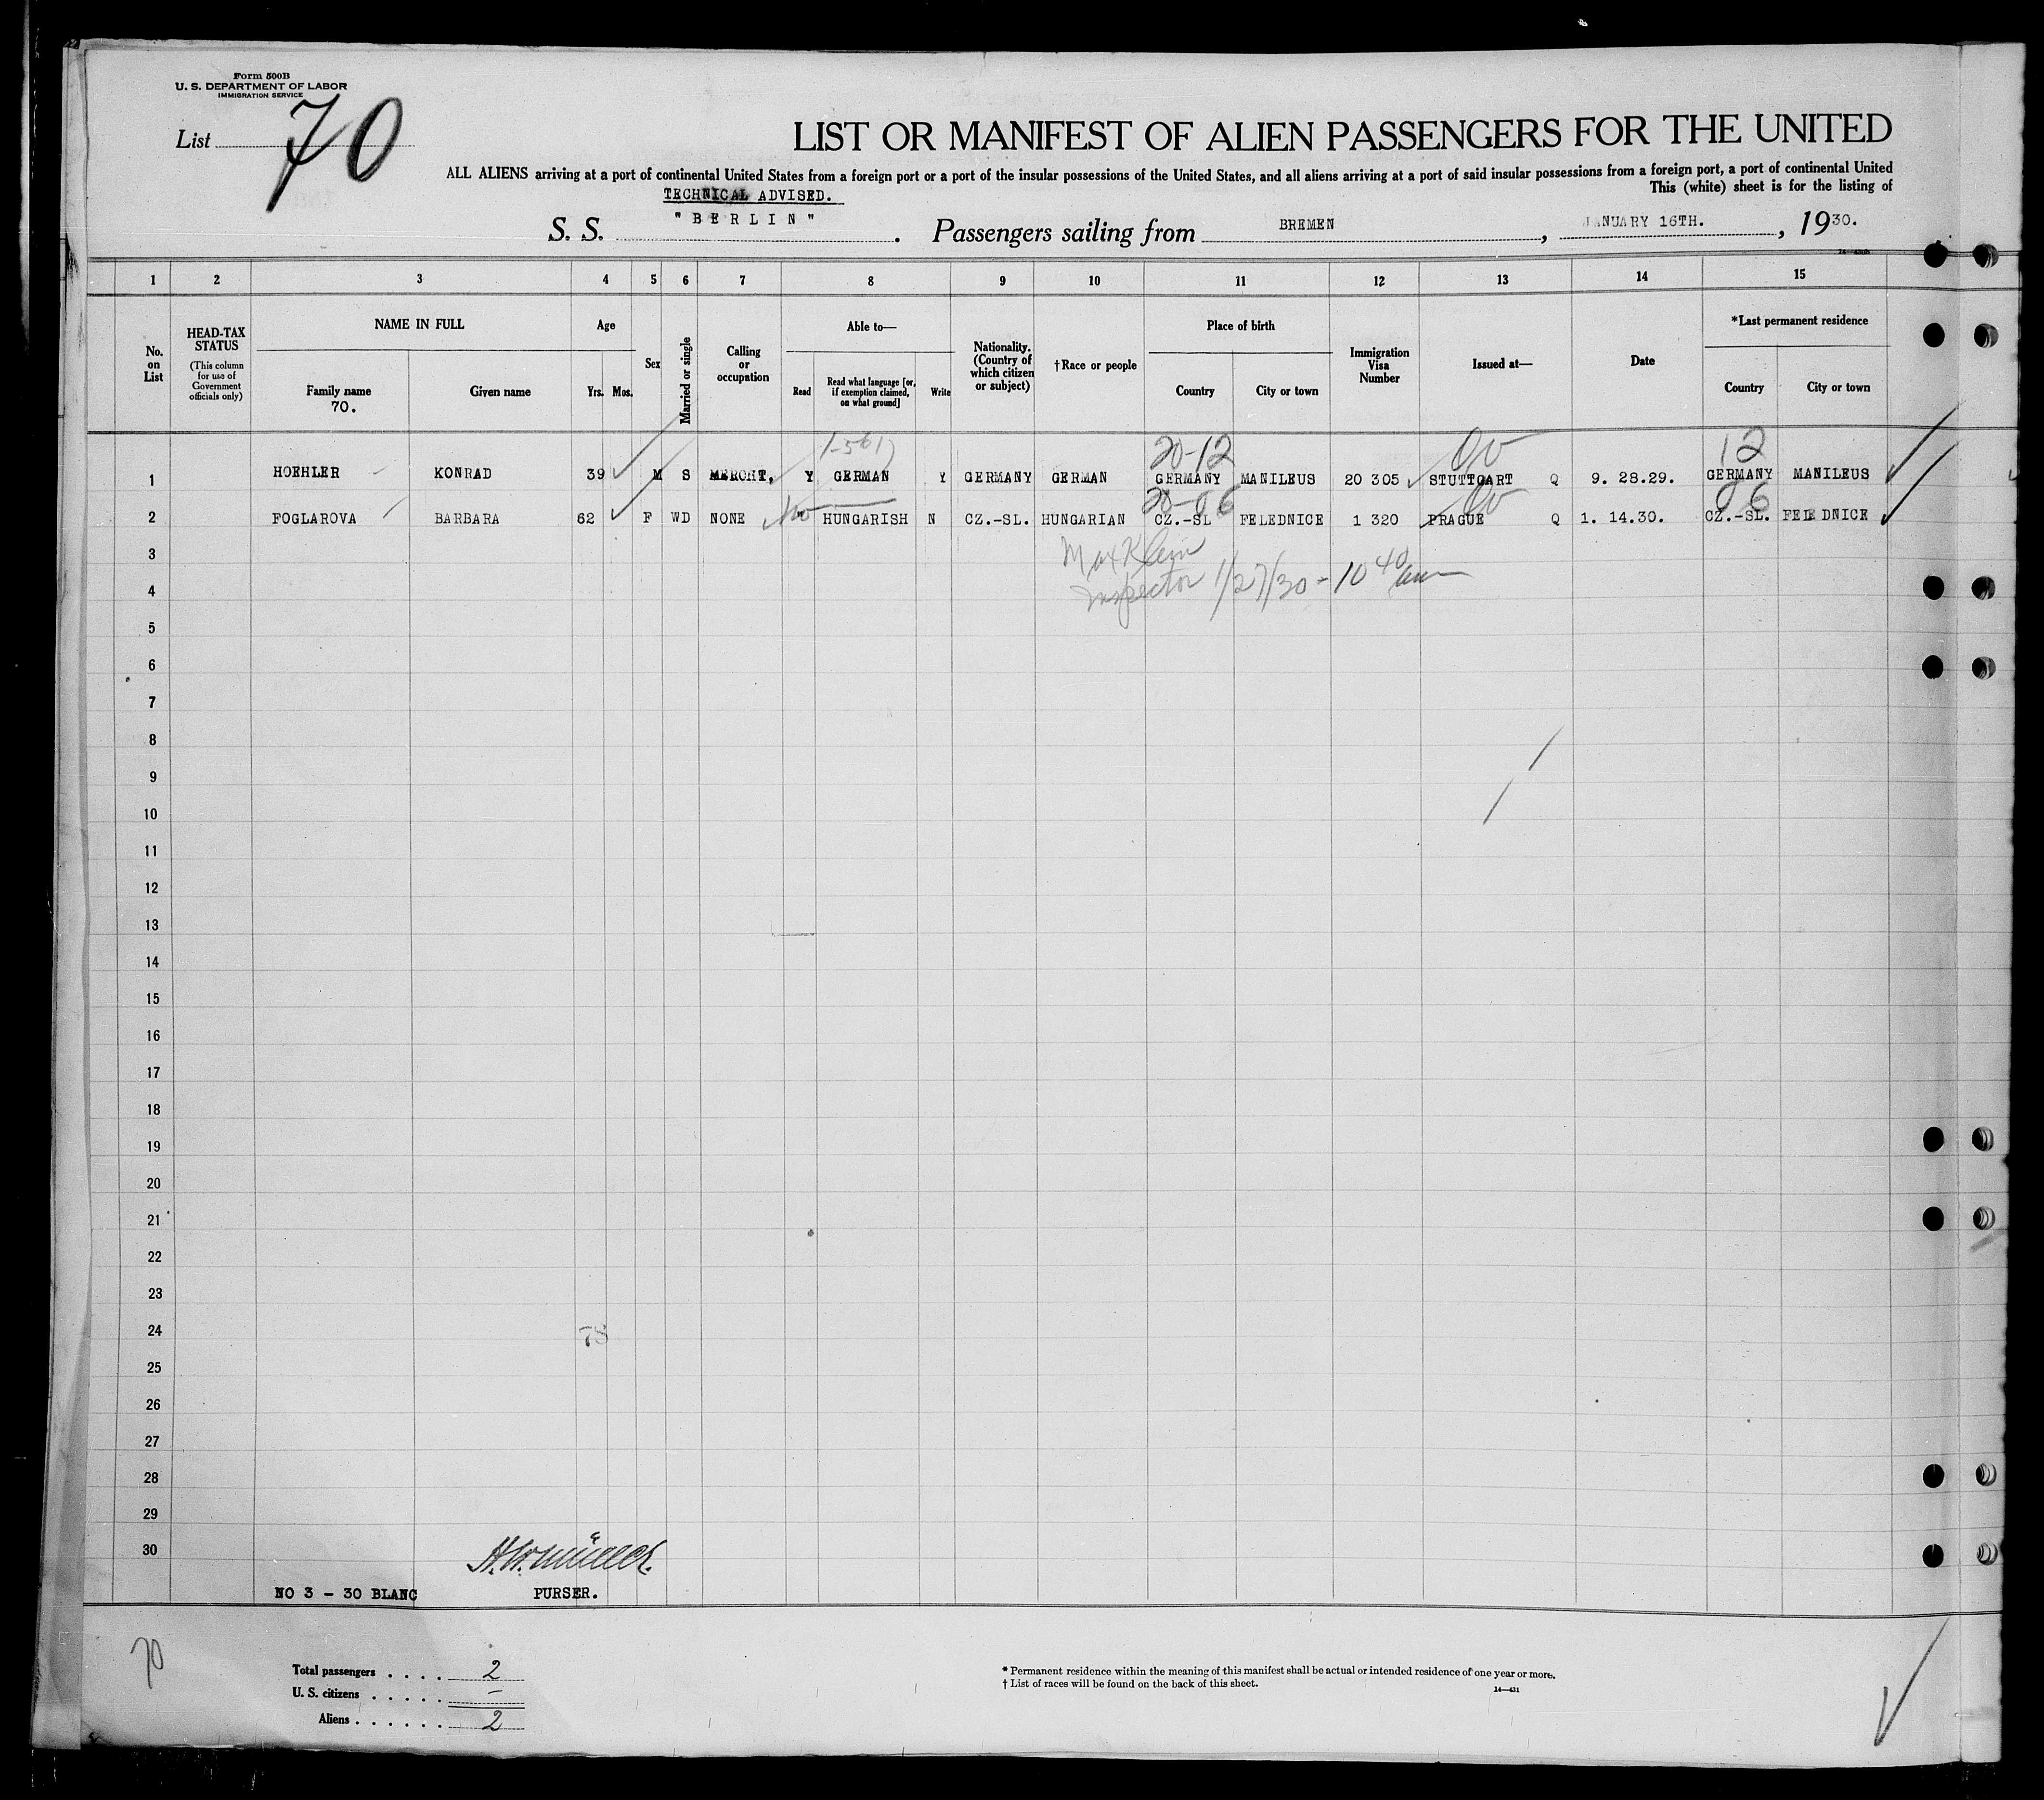 Form 500B
U. S. DEPARTMENT OF LABOR
IMMIGRATION SERVICE
List 70
LIST OR MANIFEST OF ALIEN PASSENGERS FOR THE UNITED
ALL ALIENS arriving at a port of continental United States from a foreign port or a part of the insular possessions of the United States, and all aliens arriving at a port of said insular possessions from a foreign port, a port of continental United
This (white) sheet is for the listing of
TECHNICAL ADVISED.
S. S. "BERLIN". Passengers sailing from BREMEN, JANUARY 16TH., 1930.
1 2 3 4 5 6 7 8 9 10 11 12 13 14 15
No. on List
HEAD-TAX STATUS
(This column for use of Government officials only)
NAME IN FULL
Family name
70.
Given name
Age
Yrs. Mos.
Sex
Married or single
Calling or occupation
Able to—
Read
Read what language [or, if exemption claimed, on what ground]
Write
Nationality. (Country of which citizen or subject)
†Race or people
Place of birth
Country
City or town
Immigration Visa Number
Issued at—
Date
*Last permanent residence
Country
City or town
20-12 12
1 HOEHLER KONRAD 39 M S MERCHT, Y GERMAN Y GERMANY GERMAN GERMANY MANILEUS 20 305 STUTTGART Q 9. 28.29. GERMANY MANILEUS
20-06 06
2 FOGLAROVA BARBARA 62 F WD NONE No HUNGARISH N CZ.-SL. HUNGARIAN CZ.-SL FELEDNICE 1 320 PRAGUE Q 1. 14.30. CZ.-SL. FELEDNICE
3
Max Klein
4
Inspector 1/27/30 - 10 40 am
5
6
7
8
9
10
11
12
13
14
15
16
17
18
19
20
21
22
23
24
78
25
26
27
28
29
30
H. W. Müller.
NO 3 - 30 BLANC PURSER.
70
Total passengers . . . . 2
U. S. citizens . . . . . –
Aliens . . . . . . 2
* Permanent residence within the meaning of this manifest shall be actual or intended residence of one year or more.
† List of races will be found on the back of this sheet.
14—431